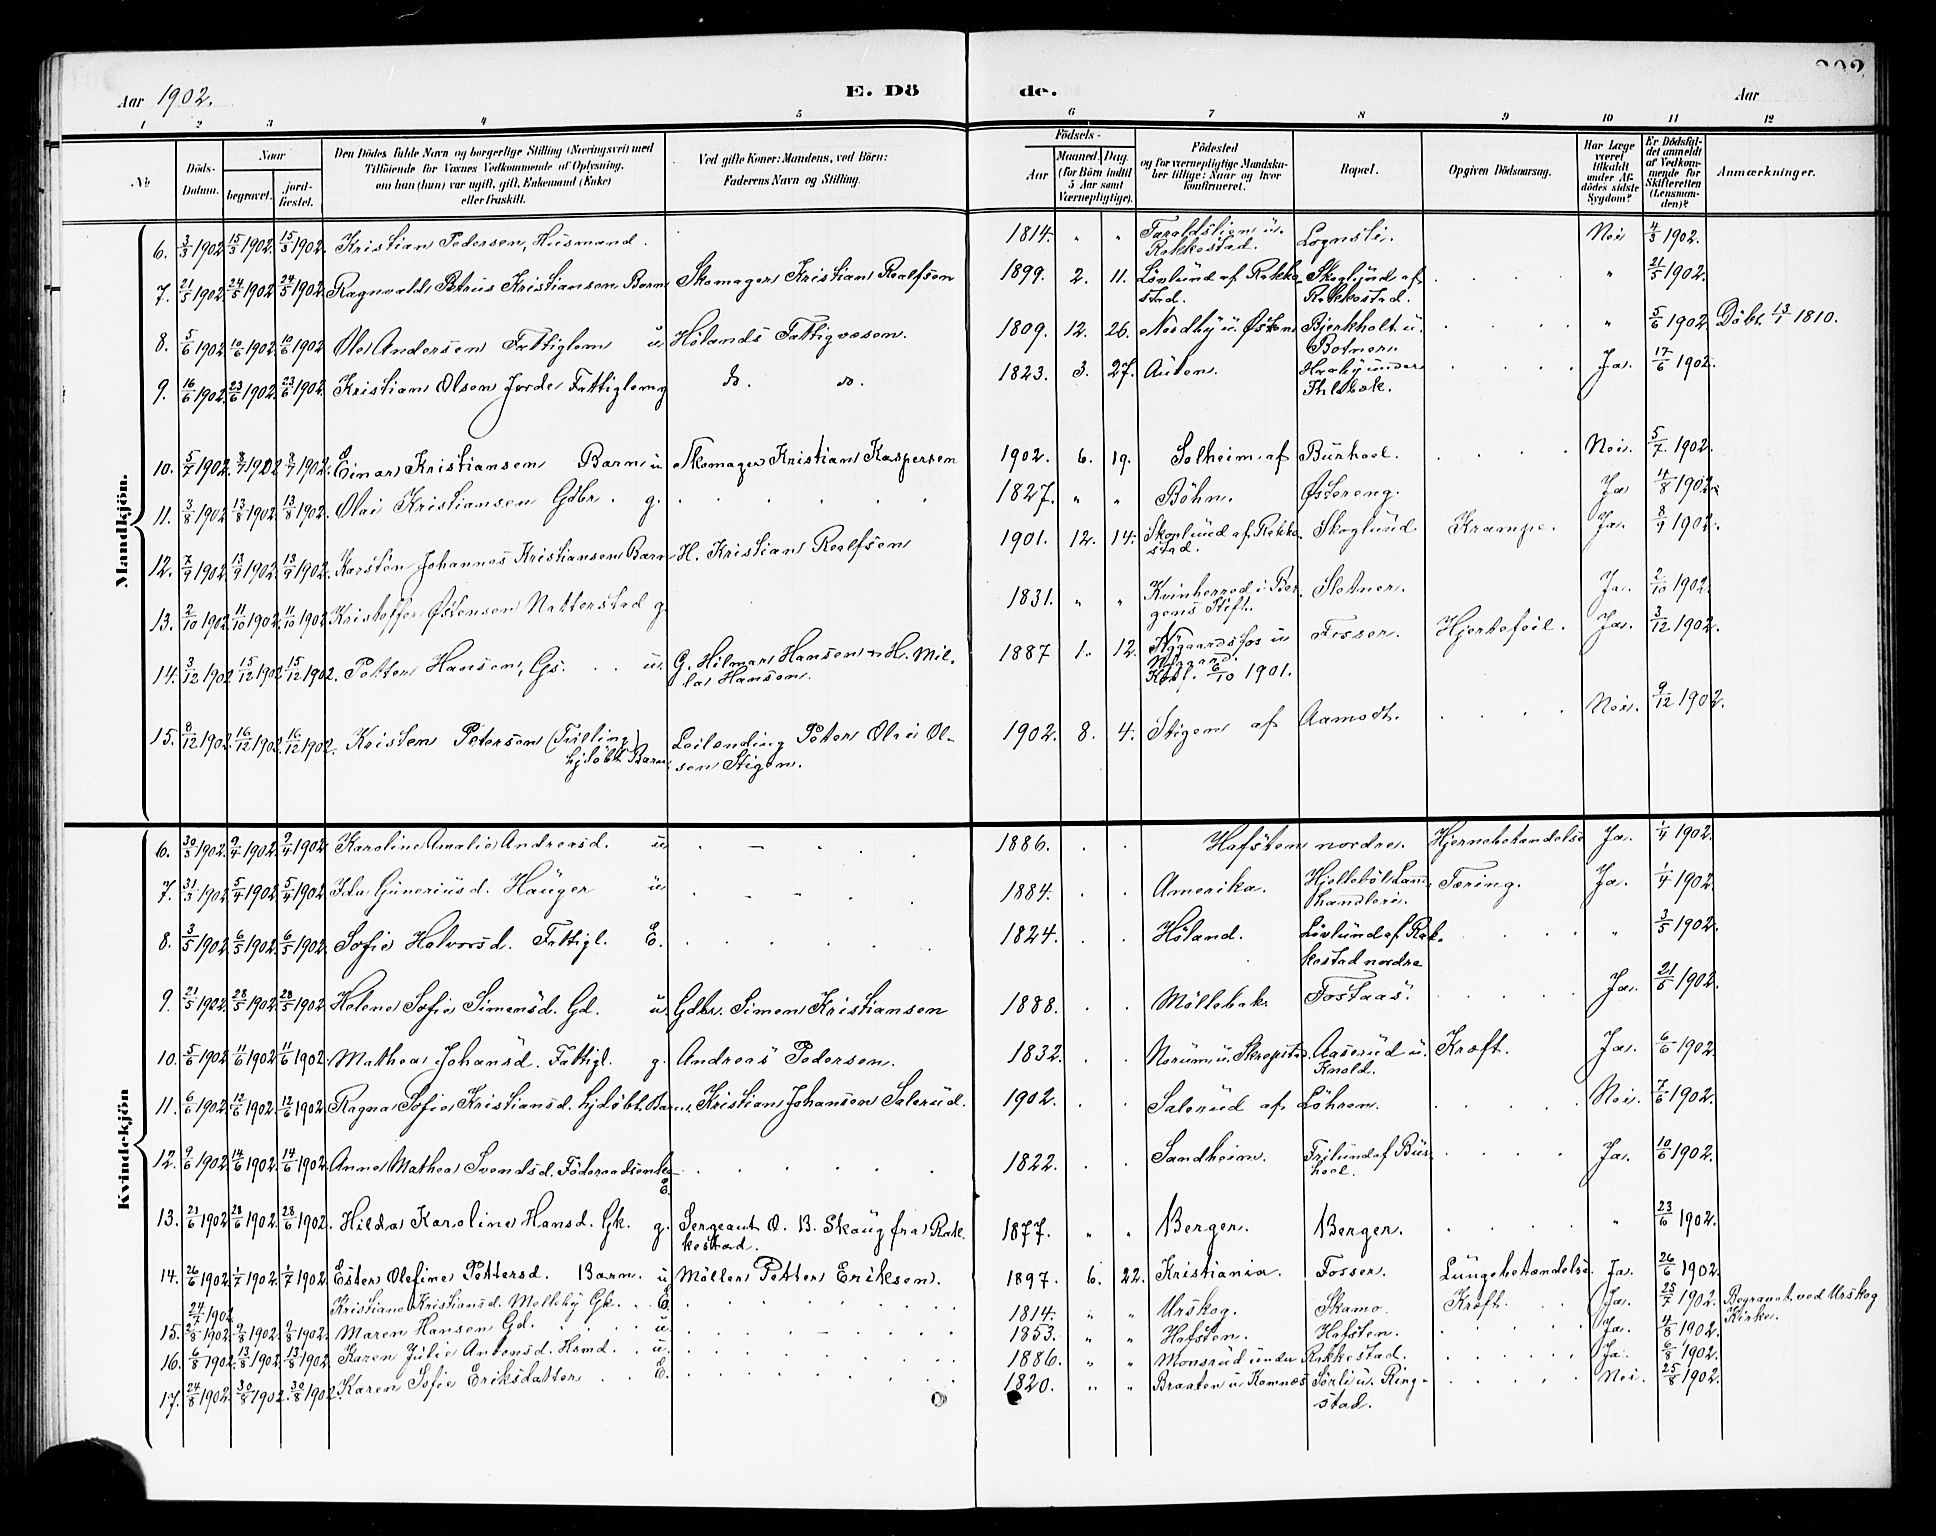 Aar 1902. E. Dö de. Aar
1 2 3 4 5 6 7 8 9 10 11 12
No
Döds-Datum.
Naar
begravet.
jord-fæstet.
Den Dödes fulde Navn og borgerlige Stilling (Næringsvei) med
Tilföiende for Voxnes Vedkommende af Oplysning,
om han (hun) var ugift, gift, Enkemand (Enke)
eller fraskilt.
Ved gifte Koner: Mandens, ved Börn:
Faderens Navn og Stilling.
Födsels-
Aar
Maaned. Dag.
(for Börn indtil
5 Aar samt
Værnepligtige).
Födested
og for værnepligtige Mandska-
ber tillige: Naar og hvor
konfirmeret.
Bopæl.
Opgiven Dödsaarsag.
Har Læge
været
tilkaldt
under Af-
dödes sidste
Sygdom?
Er Dödsfal-
det anmeldt
af Vedkom-
mende for
Skifteretten
(Lensman-
den)?
Anmærkninger.
Mandkjön.
6. 3/3 1902 15/3 1902 15/3 1902. Kristian Pedersen, Husmand. 1814. " " u. Rakkestad. Lognsli. Nei 4/3 1902.
7. 21/5 1902 24/5 1902 24/5 1902. Ragnvald Petrus Kristiansen Barn Skomager Kristian Roalfsen 1899. 2. 11. Lövlund af Rakke-
stad. Skoglund af
Rakkestad. " 21/5 1902.
8. 5/6 1902 10/6 1902 10/6 1902 Ole Andersen Fattiglem u Hölands Fattigvæsen. 1809. 12. 26. Nordby u. Østen Bjerkholt u.
Botner. " 5/6 1902 Döbt 13/1 1810.
9. 16/6 1902 23/6 1902 23/6 1902. Kristian Olsen Jorde Fattiglem g do. do. 1823. 3. 27. Auten. under
Ihlebæk. Ja. 17/6 1902.
10. 5/7 1902. 8/7 1902 8/7 1902. Einar Kristiansen Barn u Skomager Kristian Kaspersen 1902. 6. 19. Solheim af Burhol. Nei. 5/7 1902.
11. 3/8 1902 13/8 1902. 13/8 1902. Olai Kristiansen Gdbr. g. 1827. " " Böhn. Østereng. Ja 4/8 1902.
12. 7/9 1902 13/9 1902. 13/9 1902. Karsten Johannes Kristiansen Barn H. Kristian Roalfsen 1901. 12. 14. Skoglund af Rakke-
stad. Skoglund Krampe. Ja. 8/9 1902.
13. 2/10 1902 11/10 1902. 11/10 1902 Kristoffer Østensen Natterstad g. 1831. " " Kvinherred i Ber-
gens Stift. Sletner. Ja. 2/10 1902.
14. 3/12 1902 15/12 1902 15/12 1902. Petter Hansen, Gs. u. G. Hilmar Hansen - H. Mil-
la Hansen. 1887 1. 12. Nygaardsfos u
Nygaard.
Konf. 6/10 1901. Fosser. Hjertefeil. Ja. 3/12 1902.
15. 8/12 1902. 16/12 1902. 16/12 1902. Kristen Petersen (Tvilling)
hjdöbt Barn Leilending Peter Olai Ol-
sen Stigen. 1902. 8. 4. Stigen af Aamodt. Nei. 9/12 1902.
Kvindekjön
6. 30/3 1902. 9/4 1902. 9/4 1902. Karoline Amalie Andreasd. u 1886. Hafsten nordre. Hjernebetændelse Ja. 1/4 1902.
7. 31/3 1902. 5/4 1902 5/4 1902. Ida Guneriusd. Hauger u 1884. Amerika. Hjelleböl Land-
handleri. Tæring. Ja. 1/4 1902.
8. 3/5 1902. 6/5 1902. 6/5 1902. Sofie Halvorsd. Fattigl. E. 1824. Höland. Lövlund af Rak-
kestad nordre " 3/5 1902.
9. 21/5 1902. 28/5 1902. 28/5 1902 Helene Sofie Simensd. Gd. u. Gdbr. Simen Kristiansen 1888. Möllebak. Fostaas. Ja. 21/5 1902.
10. 5/6 1902 11/6 1902. 11/6 1902. Mathea Johansd. Fattigl. g. Andreas Pedersen. 1832. Norum u. Skrepstad Aaserud u.
Knold. Kræft. Ja. 6/6 1902.
11. 6/6 1902. 12/6 1902. 12/6 1902. Ragna Sofie Kristiansd. hjdöbt Barn. Kristian Johansen Salerud. 1902. Salerud af Löhren. Nei. 7/6 1902.
12. 9/6 1902 14/6 1902. 14/6 1902. Anne Mathea Svendsd. Föderaadsenke
E. 1822. Sandheim. Frilund af Bur-
hol. Ja. 10/6 1902.
13. 21/6 1902 28/6 1902. 28/6 1902. Hilda Karoline Hansd. Gk. g. Sergeant O. B. Skaug fra Rak-
kestad. 1877. " " Berger. Berger. " 23/6 1902.
14. 26/6 1902. 1/7 1902. 1/7 1902 Ester Olefine Pettersd. Barn. u Möller Petter Eriksen. 1897. 6. 22. Kristiania. Fosser. Lungebetændelse Ja. 26/6 1902.
24/7 1902. Kristiane Kristiansd. Melleby Gk. E. 1814. " " Urskog. Skamo. Kræft. Ja. 25/7 1902. Begravet ved Urskog
Kirke.
15. 2/8 1902. 9/8 1902. 9/8 1902. Maren Hansen Gd. u 1853. " " Hafsten. Hafsten. Ja. 4/8 1902.
16. 6/8 1902. 13/8 1902. 13/8 1902. Karen Julie Antonsd. Hsmd. u. 1886. " " Monsrud under Rakkestad. Ja. 6/8 1902.
17. 24/8 1902. 30/8 1902. 30/8 1902. Karen Sofie Eriksdatter E. 1820. " " Braaten u Komnæs Sörli u. Ring-
stad. Nei. 25/8 1902.